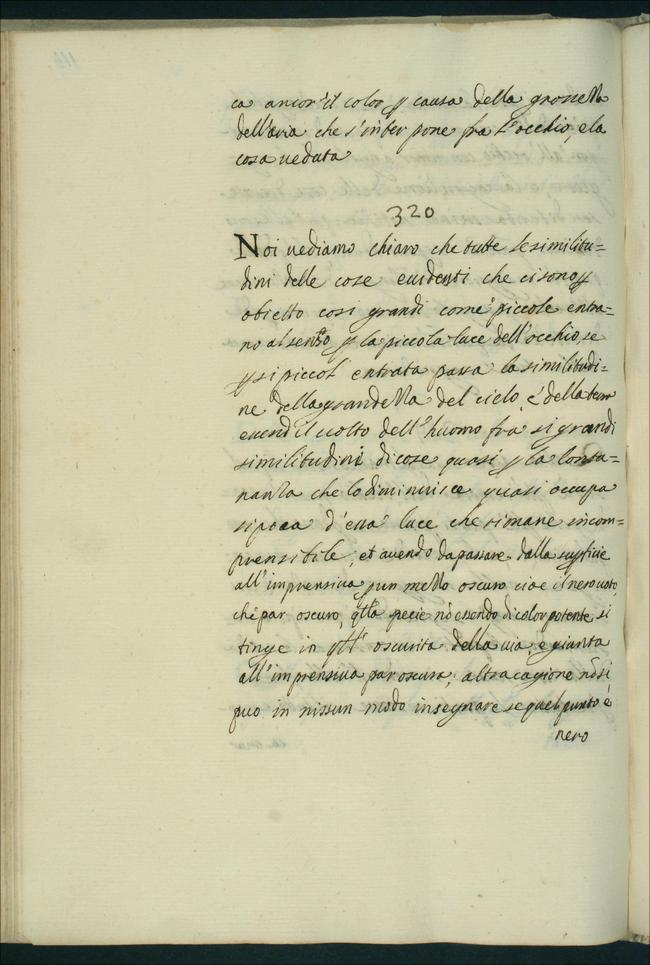 ca ancor' il color p causa della grossezza
dell'aria che s'inter pone fra l'occhio, e la
cosa ueduta
320
Noi uediamo chiaro che tutte le similitu=
dini delle cose euidenti che ci sono p
obietto cosi grandi come piccole entra=
no al senso p la piccola luce dell'occhio, se
p si piccol' entrata passa la similitudi=
ne della grandezza del cielo, e della terra
essend il uolto dell'huomo fra si grandi
similitudini di cose quasi p la lonta=
nanza che lo diminuisce quasi occupa
si poca d'essa luce che rimane incom=
prensibile; et auendo da passare dalla supficie
all'imprensiua p un mezzo oscuro cioe il neruo uoto
che par oscuro, qlla specie nõ essendo di color potente si
tinge in qll' oscurita della uia, e gianta
all'imprensiua par oscura; altra cagione nõ si
puo in nissun modo insegnare se quel punto è
nero